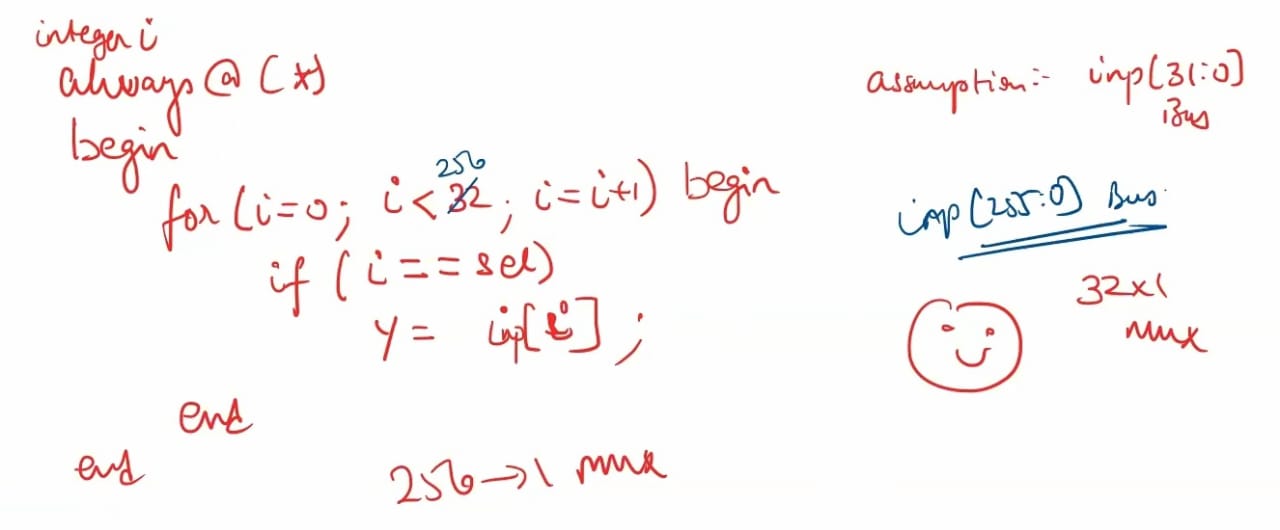 integer i
always@(*)
begin
for(i=0; i<32; i=i+1) begin
256
if (i==sel)
y= inp[i];
end
end
256→1 mux
assumption:- inp[31:0]
Bus
inp[255:0] Bus
32x1
mux